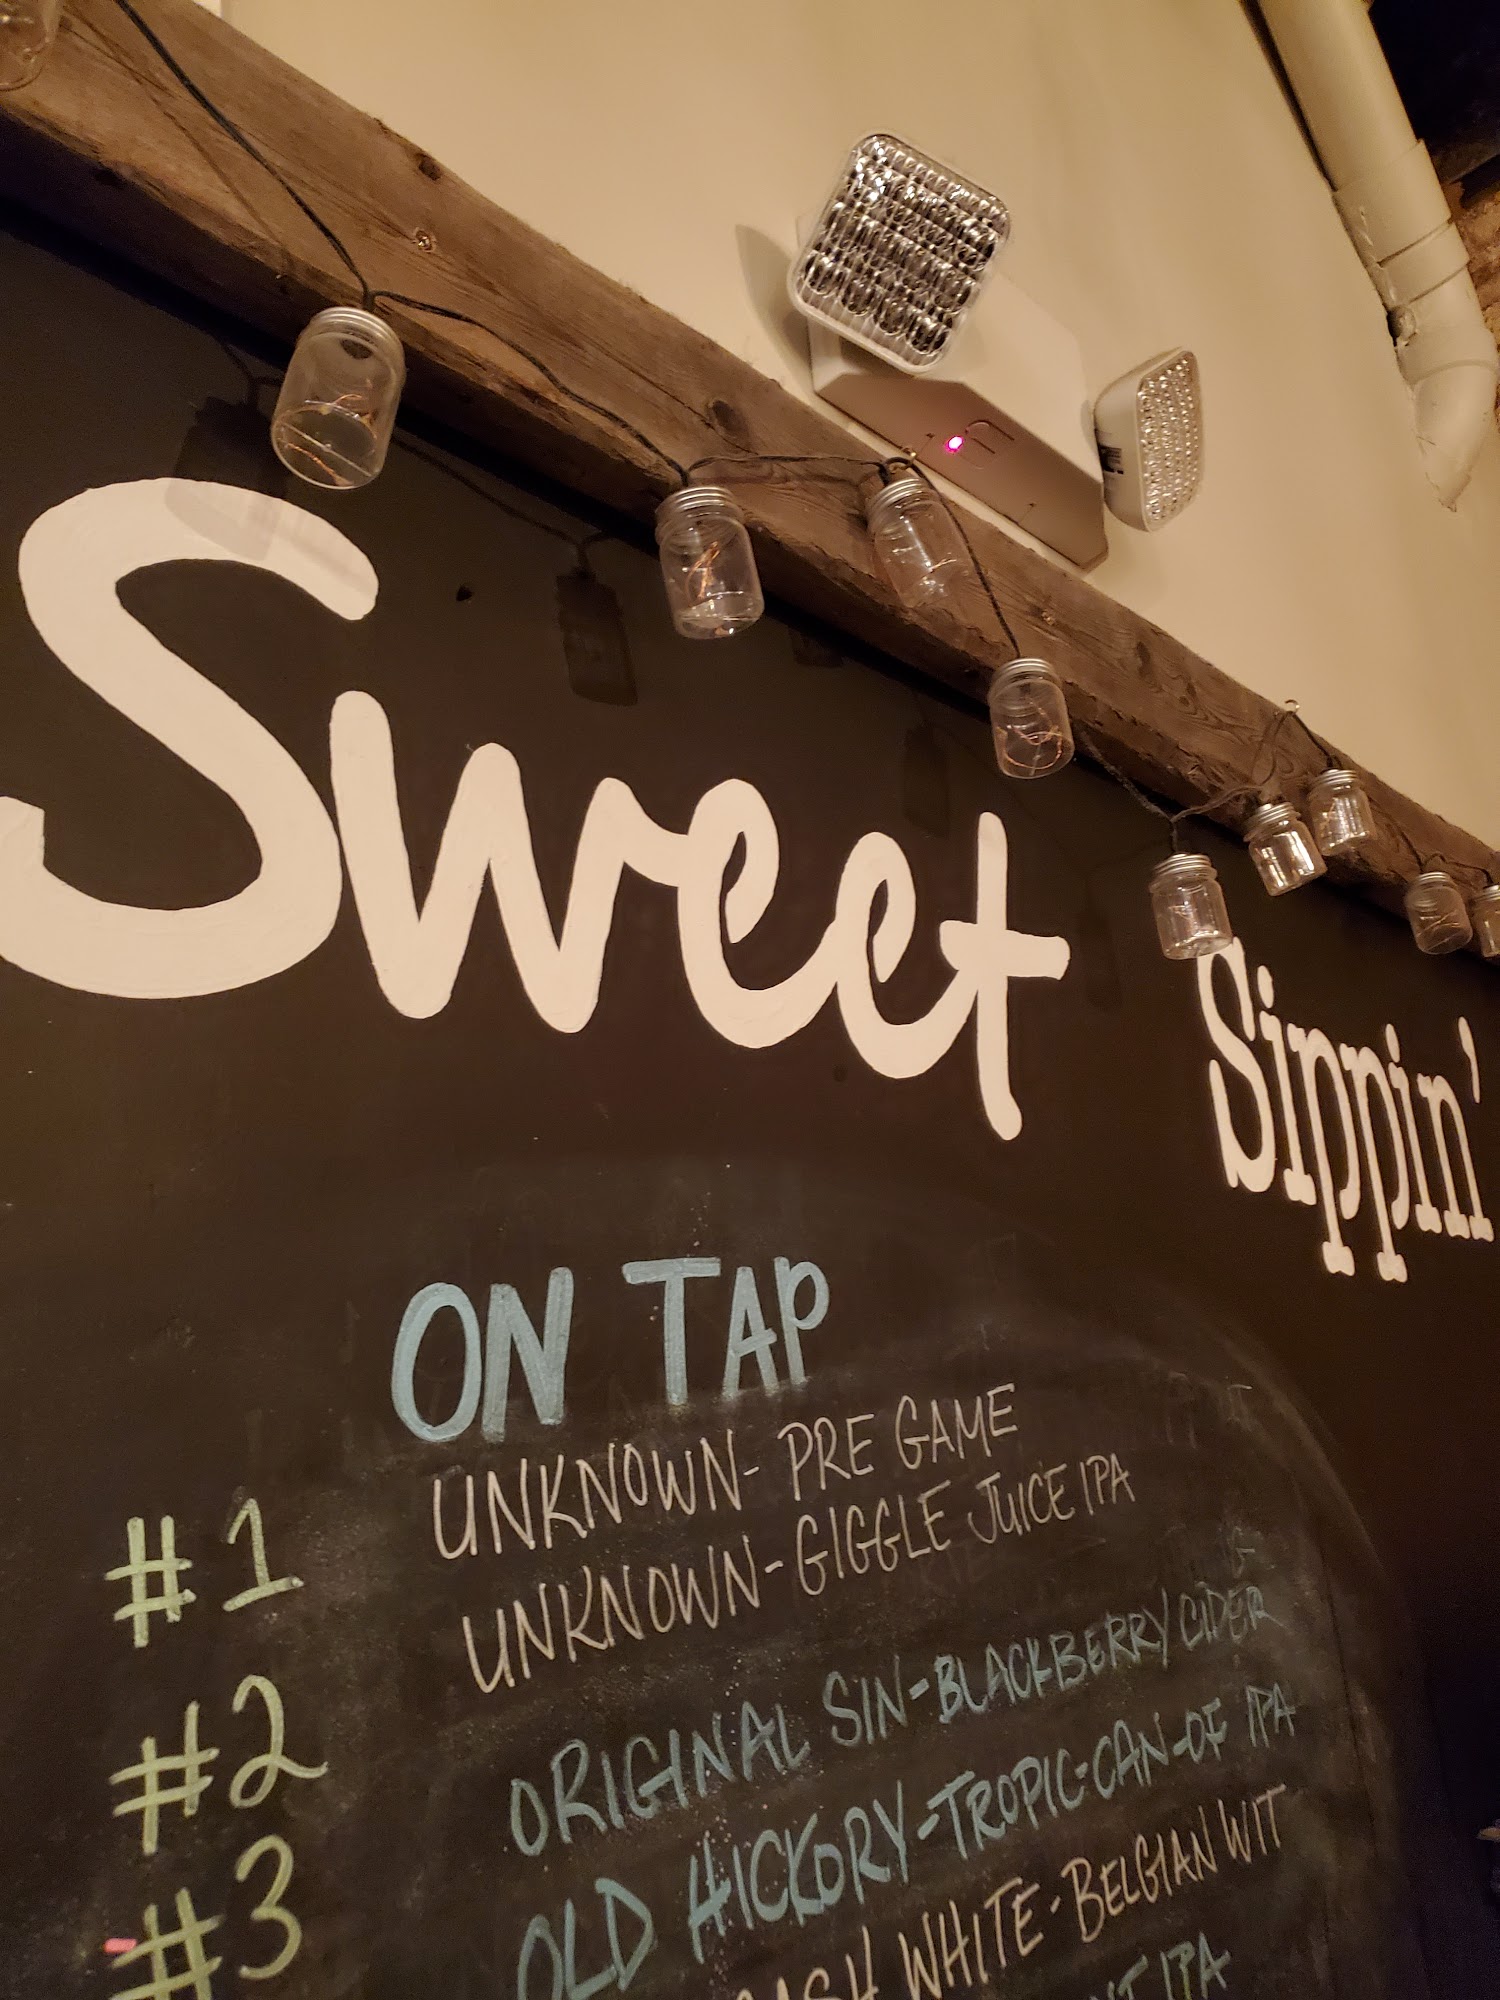 Sweet Sippin'
ON TAP
#1 UNKNOWN- PRE GAME
UNKNOWN-GIGGLE JUICE IPA
#2 ORIGINAL SIN-BLACKBERRY CIDER
OLD HICKORY-TROPIC-CAN-OF IPA
#3 WHITE-BELGIAN WIT
IPA